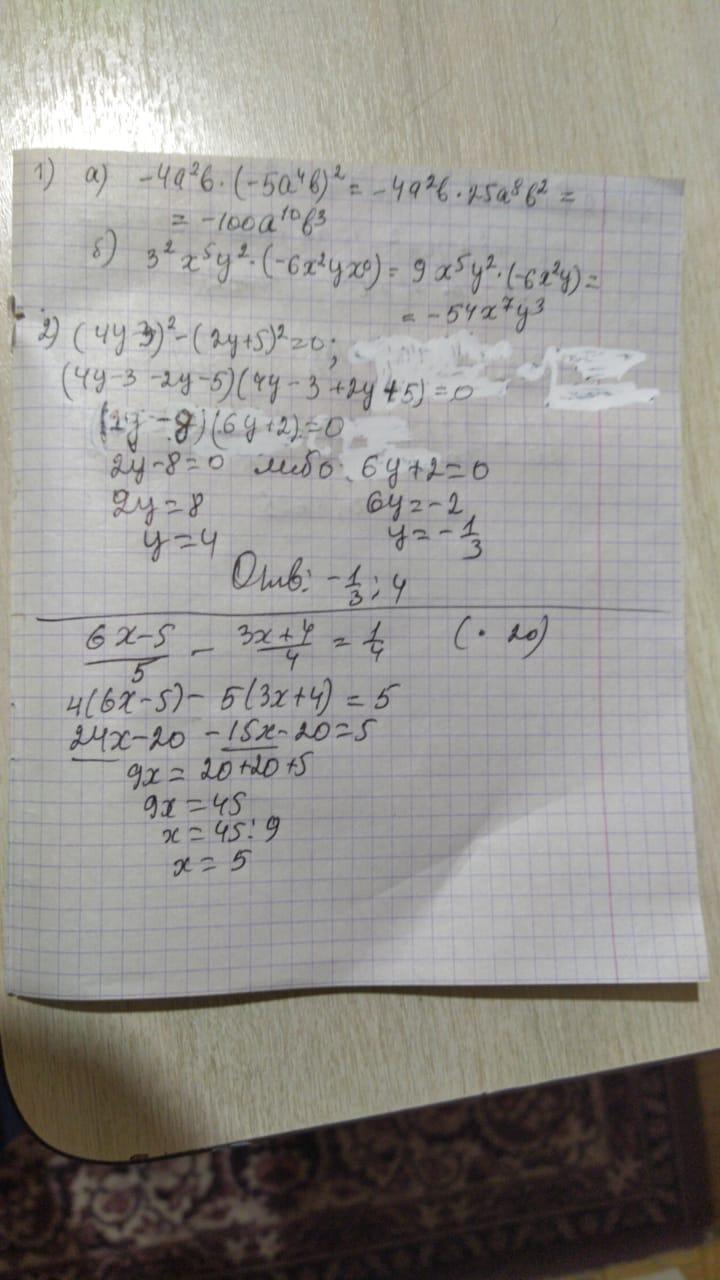 1) а) -4a²b · (-5a⁴b)² = -4a²b · 25a⁸b² =
= -100a¹⁰b³
б) 3² x⁵y² · (-6x²yx⁰) = 9x⁵y² · (-6x²y) =
= -54x⁷y³
2) (4y-3)² - (2y+5)² = 0;
(4y-3-2y-5)(4y-3+2y+5) = 0
(2y-8)(6y+2) = 0
2y-8=0 либо: 6y+2=0
2y=8 6y=-2
y=4 y=-1/3
Отв: -1/3; 4
(6x-5)/5 - (3x+4)/4 = 1/4 (· 20)
4(6x-5) - 5(3x+4) = 5
24x-20 -15x-20=5
9x = 20+20+5
9x = 45
x = 45:9
x = 5